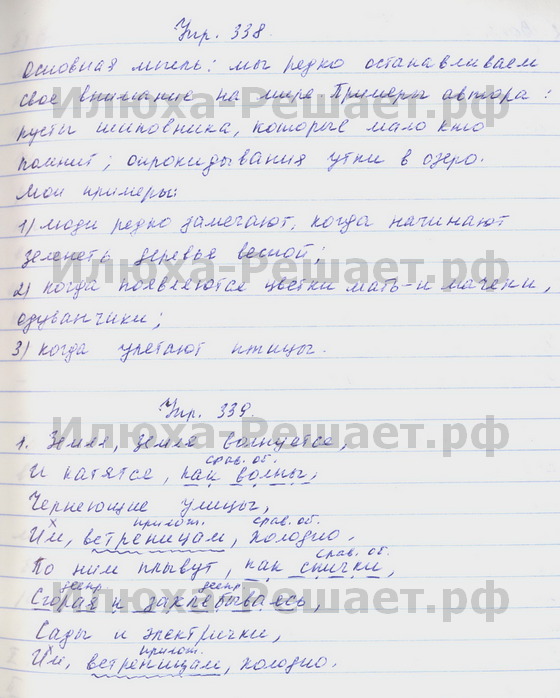 Упр. 338.
Основная мысль: мы редко останавливаем
свое внимание на мире. Примеры автора:
кусты шиповника, которые мало кто
помнит; опрокидывания утки в озеро.
Мои примеры:
1) люди редко замечают, когда начинают
зеленеть деревья весной;
2) когда появляются цветки мать-и-мачехи,
одуванчики;
3) когда улетают птицы.
Упр. 339.
1. Земля, земля волнуется,
срав. об.
И катятся, как волны,
Чернеющие улицы,
х прилож. срав. об.
Им, ветреницам, холодно.
срав. об.
По ним плывут, как спички,
деепр. деепр.
Сгорая и захлебываясь,
Сады и электрички,
х прилож.
Им, ветреницам, холодно.
Илюха-Решает.рф
Илюха-Решает.рф
Илюха-Решает.рф
Илюха-Решает.рф